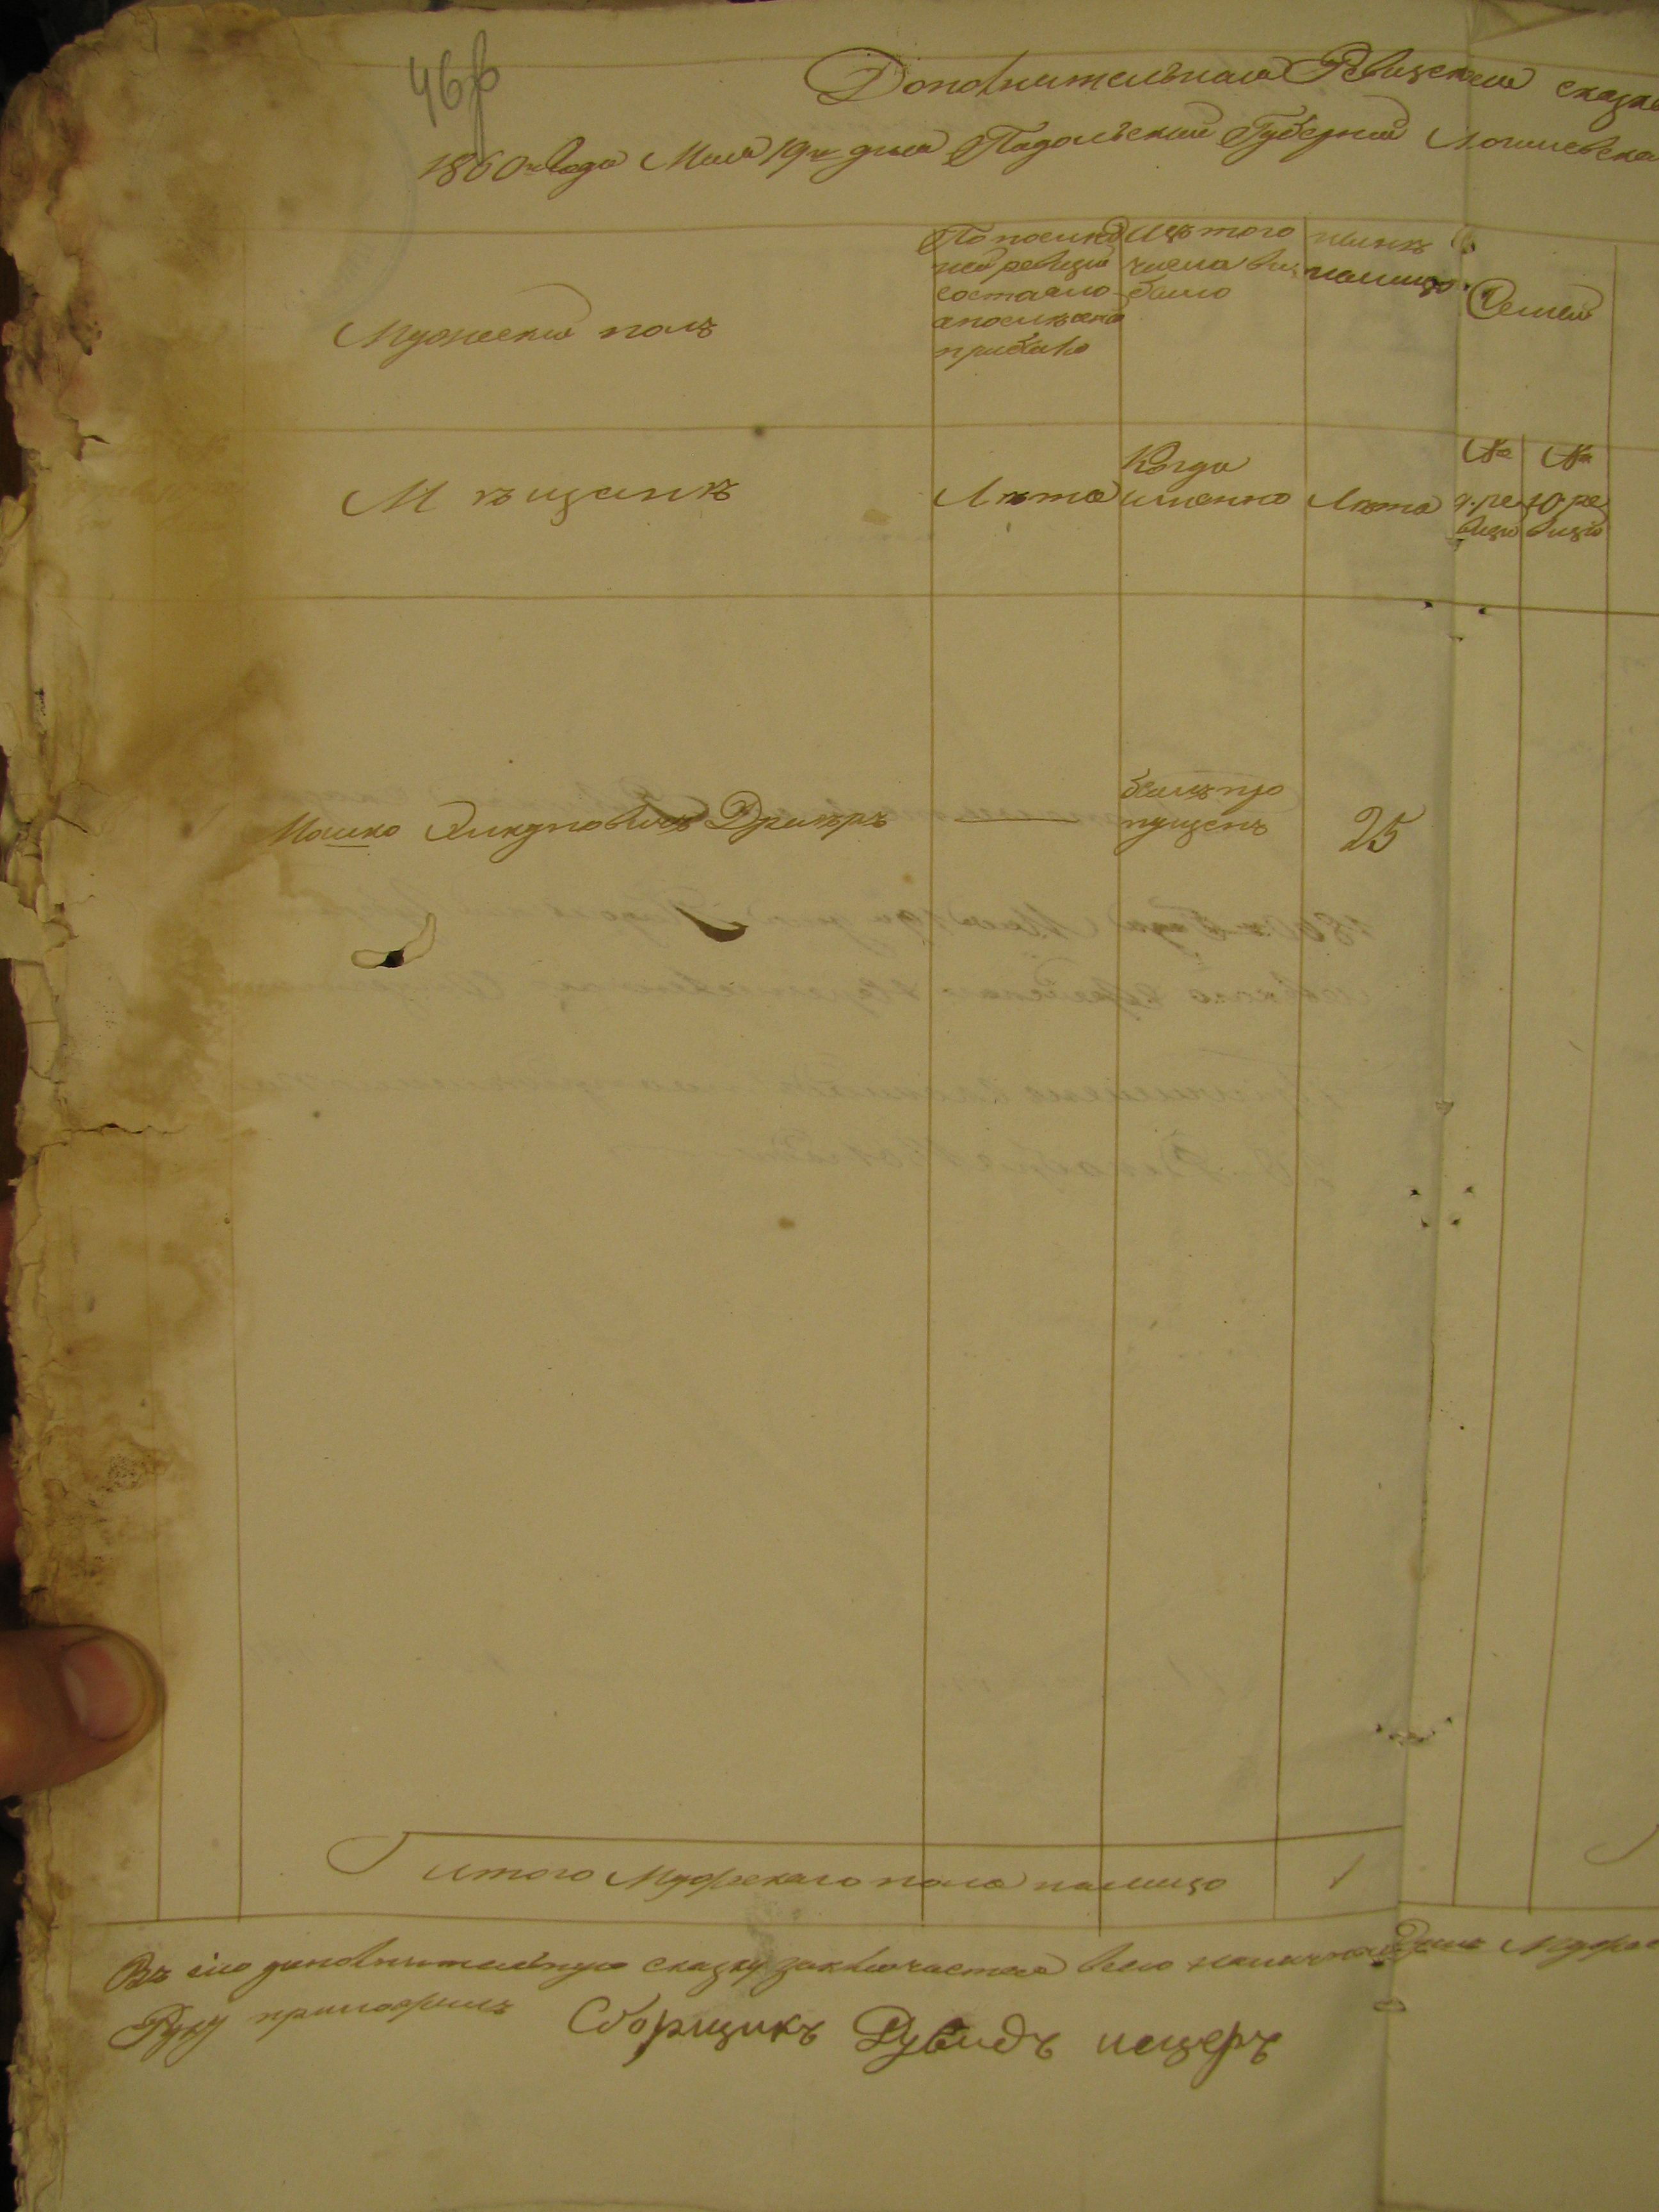 46
Дополнительная Ревизская сказка
1860 Года Мая 19 дня Подольской Губернии
Мужеский полъ
По последней ревизіи состояло а после оной прибыло
Изъ того числа выбыло
ныне налицо
Семей
Мещане
Лета
Когда именно
Лета
№ 9. ревизіи
№ 10 ревизіи
Мошко Дрикеръ
былъ пропущенъ
25
Итого Мужескаго пола налицо 1
Въ сію дополнительную сказку заключается всего Мужес
Руку приложилъ Сборщикъ Рувидъ